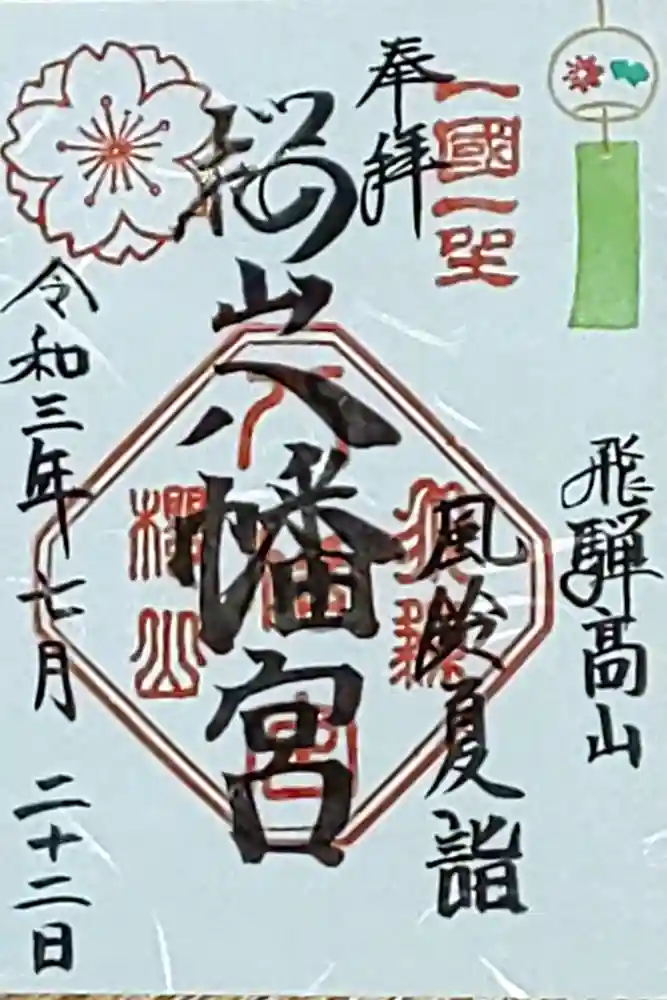 飛騨高山
一國一社
奉拝
風鈴夏詣
桜山八幡宮
櫻山
八幡
宮
令和三年七月 二十二日